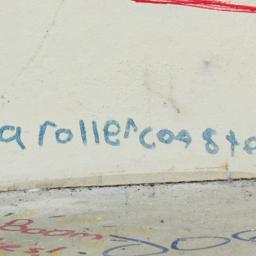 a rollercoaste
Boom